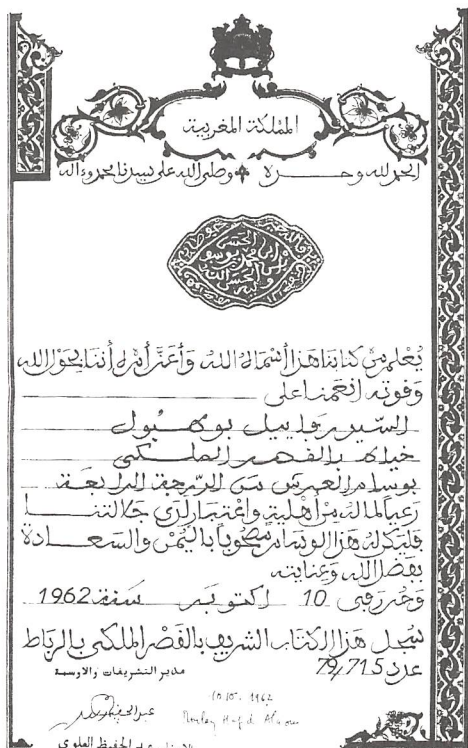 المملكة المغربية
الحمد لله وحده وصلى الله على سيدنا محمد وءاله
يعلم من كتابنا هذا أسماه الله وأعز أمره أننا بحول الله
وقوته أنعمنا على
السيد رفاييل بوهبول
خياط بالقصر الملكي
بوسام العرش من الدرجة الرابعة
رعيا لما له من أهلية واعتبار لدى جلالتنا
فليكن له هذا الوسام مصحوبا باليمن والسعادة
بفضل الله وعنايته
وحرر في 10 اكتوبر سنة 1962
سجل هذا الكتاب الشريف بالقصر الملكي بالرباط
عدد 79,715
مدير التشريفات والاوسمة
10.10.1962
Moulay Hafid Alaoui
عبد الحفيظ العلوي